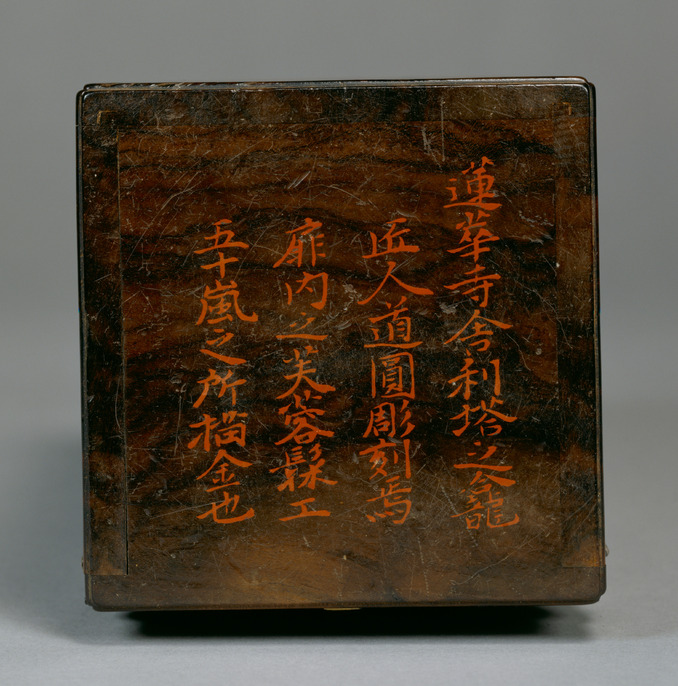 蓮華寺舎利塔之龕
匠人道圓彫刻焉
扉内之芙蓉髹工
五十嵐之所描金也